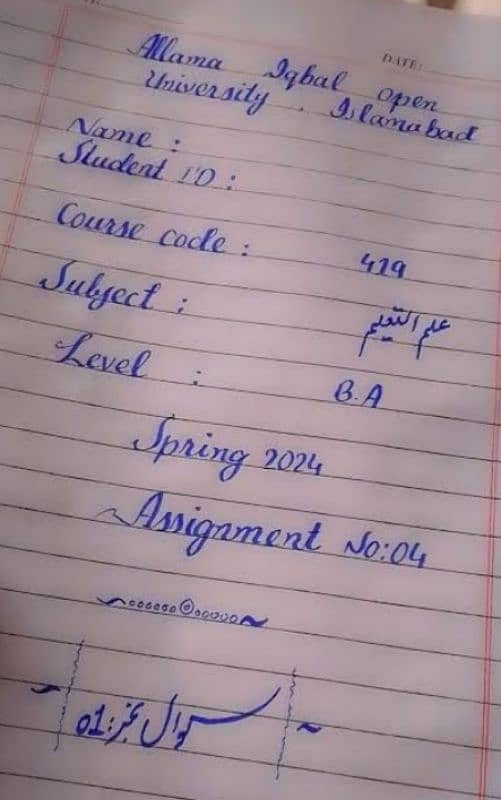 DATE:
Allama Iqbal Open
University. Islamabad
Name :
Student I'D :
Course code : 419
Subject : علم التعلیم
Level : B.A
Spring 2024
Assignment No:04
سوال نمبر:01